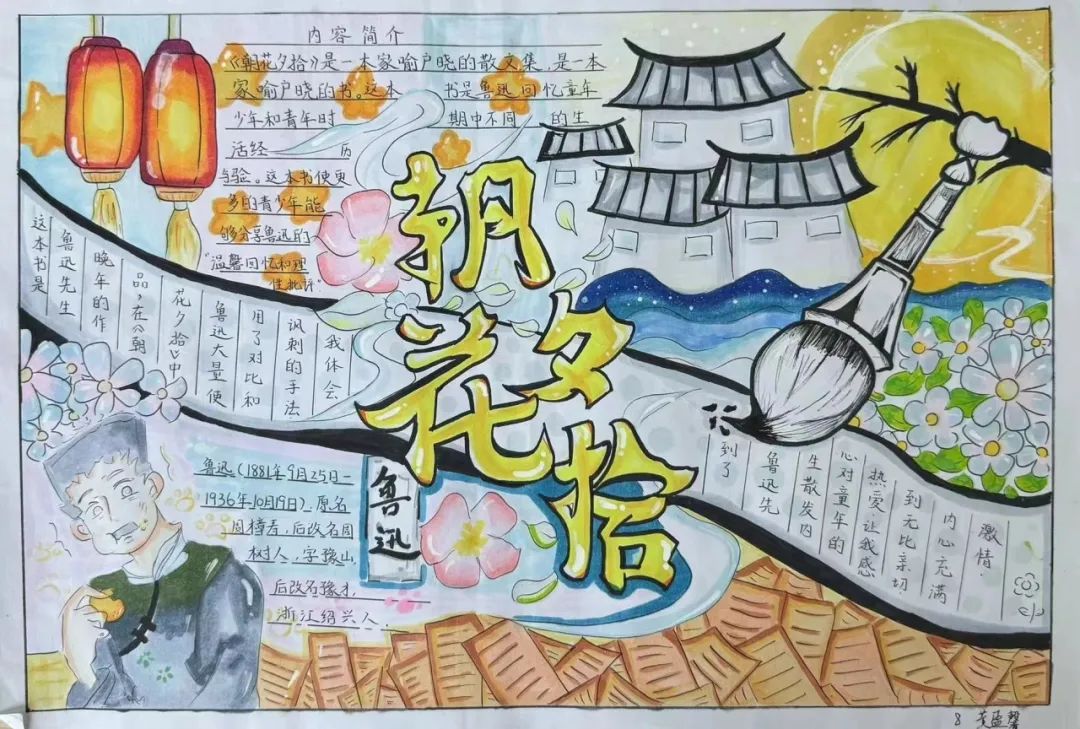 内容简介
《朝花夕拾》是一本家喻户晓的散文集,是一本
家喻户晓的书。这本 书是鲁迅回忆童年
少年和青年时 期中不同 的生
活经 历
与验。这本书使更
多的青少年能
够分享鲁迅的
"温馨回忆和理
性批评"
朝
花夕
拾
这本书是
鲁迅先生
晚年的作
品,在《朝
花夕拾》中
鲁迅大量使
用了对比和
讽刺的手法
我体会
到了
鲁迅先
生散发内
心对童年的
热爱,让我感
到无比亲切.
内心充满
激情.
鲁迅(1881年9月25日—
1936年10月19日).原名
周樟寿,后改名周
树人,字豫山,
后改名豫才,
浙江绍兴人.
鲁迅
8